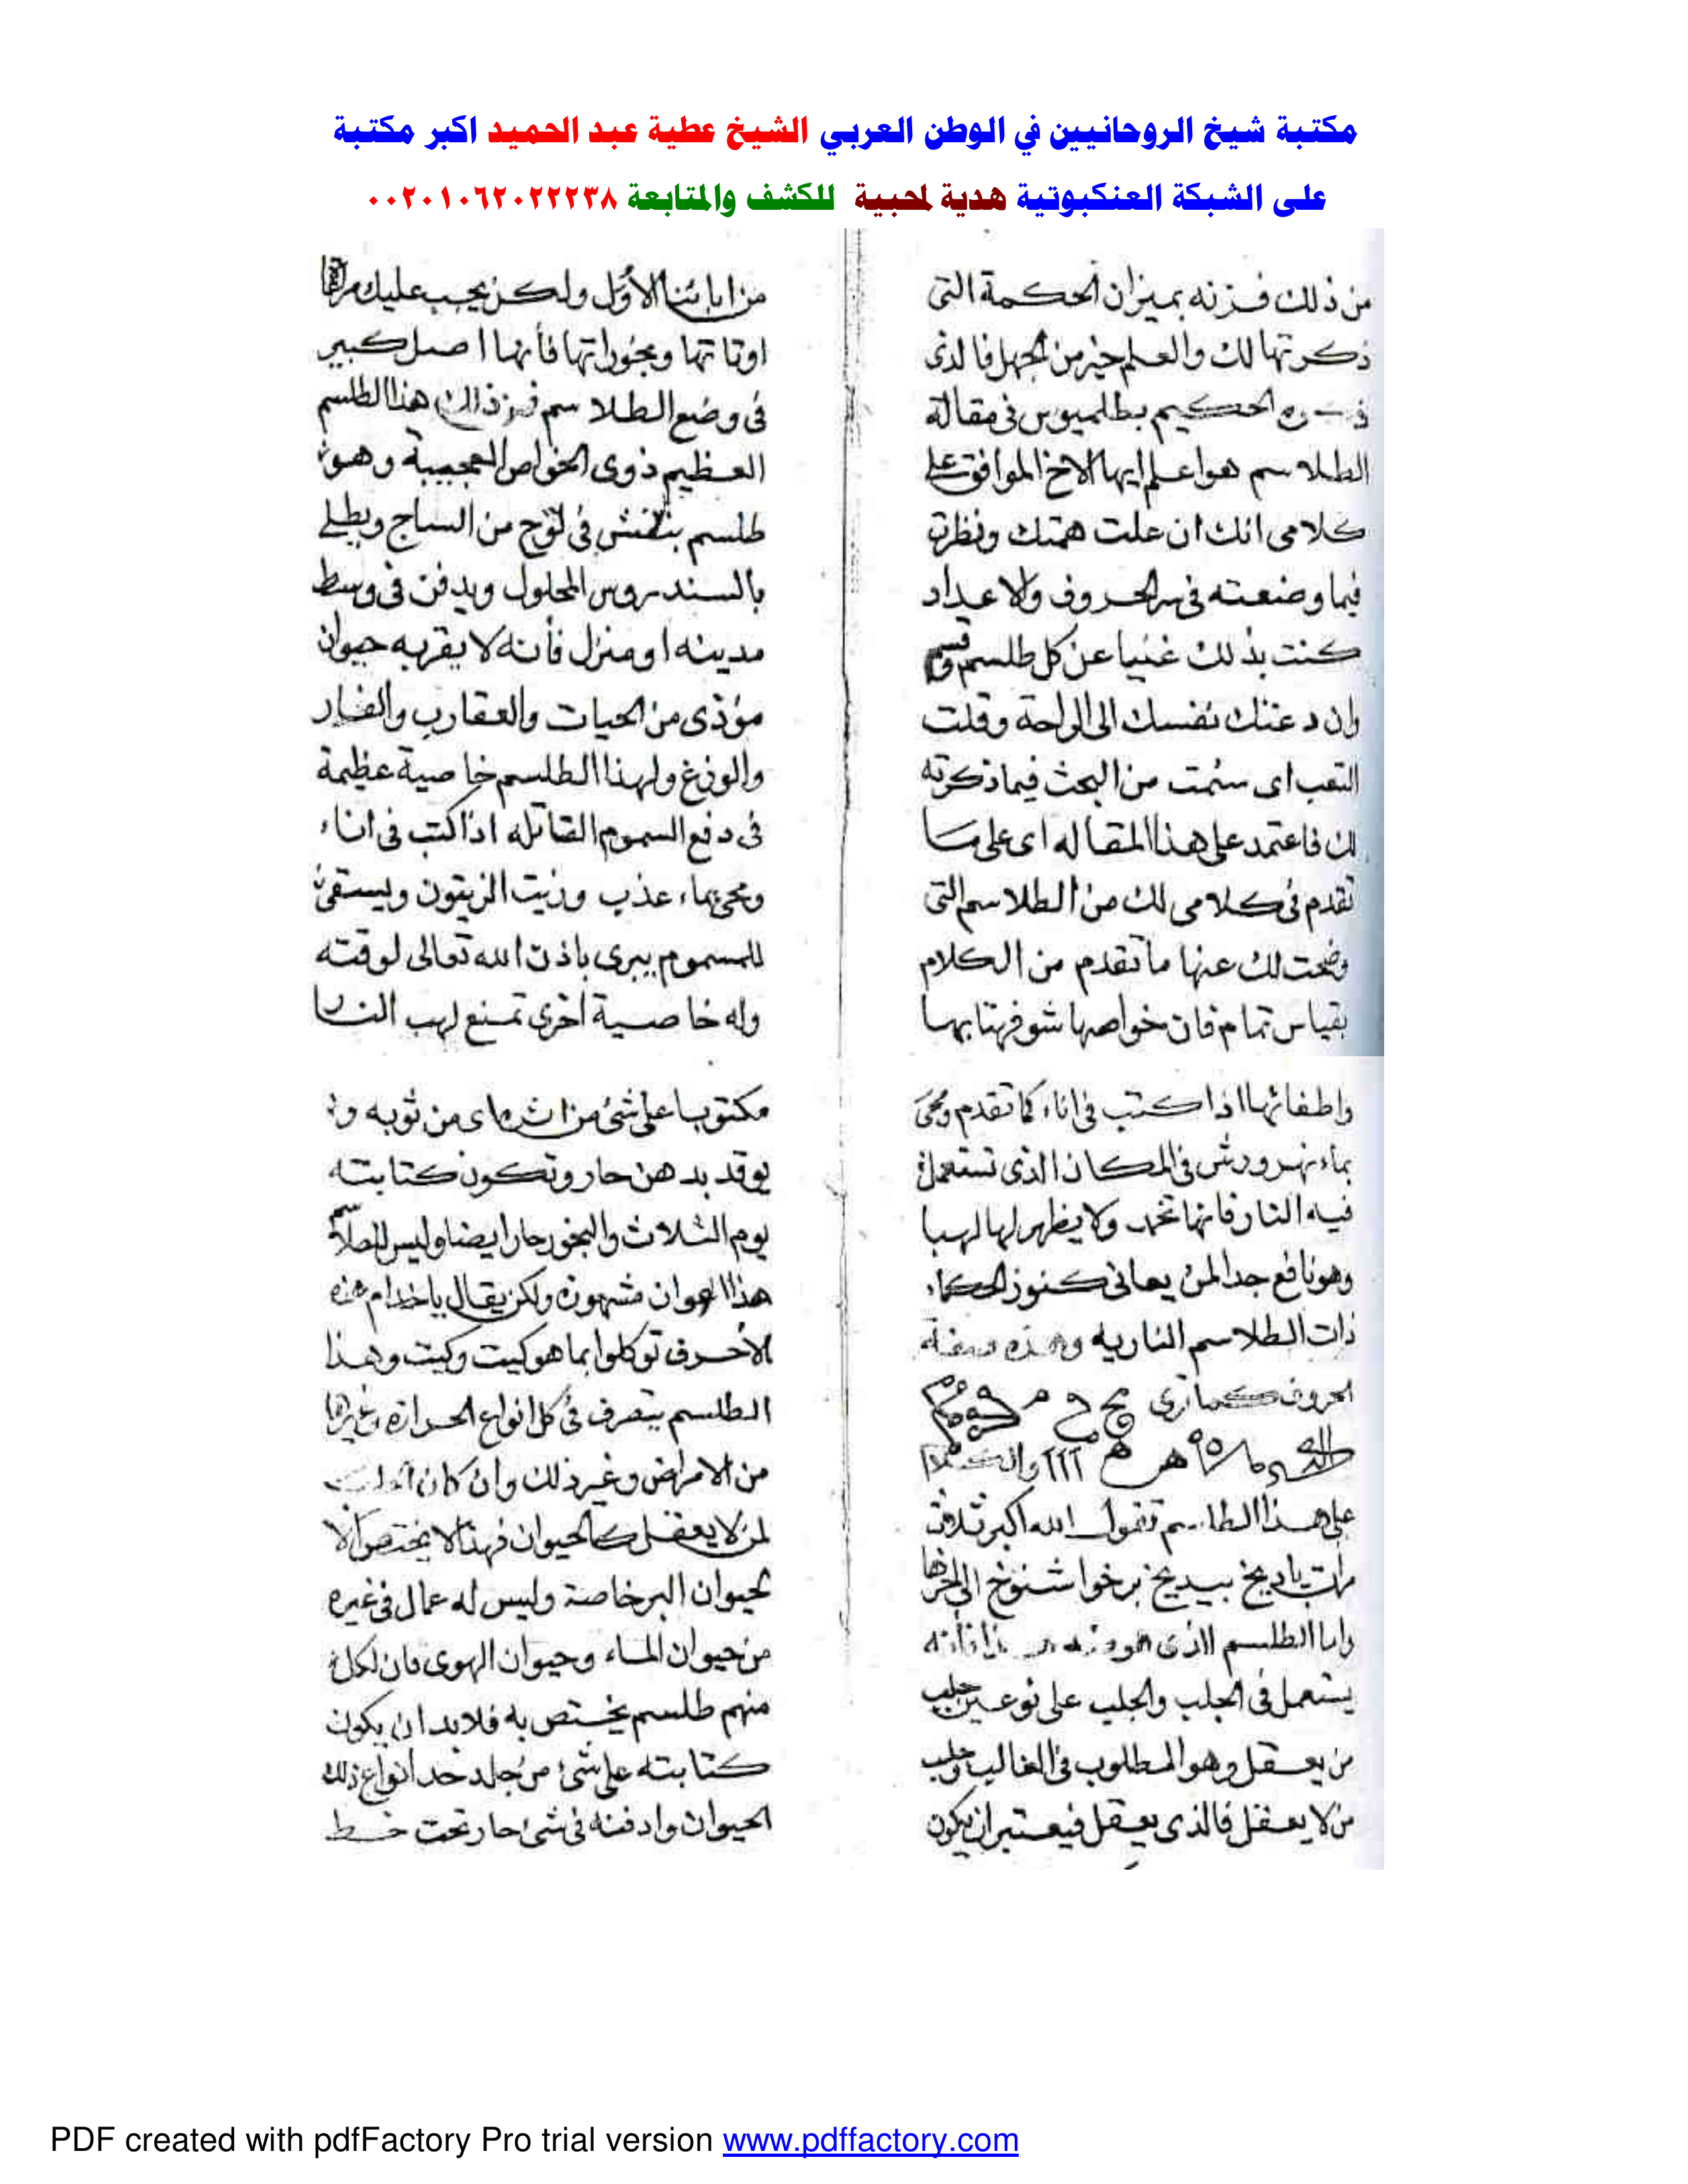 مكتبة شيخ الروحانيين في الوطن العربي الشيخ عطية عبد الحميد اكبر مكتبة
على الشبكة العنكبوتية هدية لمحبية للكشف والمتابعة ٠٠٢٠١٠٦٢٠٢٢٢٣٨
من ذلك فزنه بميزان الحكمة التى
ذكرتها لك والعلم خير من الجهل فالذى
الحكيم بطلميوس فى مقالة
الطلاسم هو اعلم ايها الاخ الموافق على
كلامى انك ان علت همتك ونظرت
فيما وضعته فى سر الحروف والاعداد
كنت بذلك غنيا عن كل طلسم وقسم
وان دعتك نفسك الى الراحة وقلت
التعب اى سئمت من البحث فيما ذكرته
لك فاعتمد على هذا المقاله اى على ما
تقدم فى كلامى لك من الطلاسم التى
وضحت لك عنها ما تقدم من الكلام
بقياس تمام فان خواصها
من ابائنا الاول ولكن يجب عليك
اوقاتها وبخوراتها فأنها اصل كبير
فى وضع الطلاسم فمن ذلك هذا الطلسم
العظيم ذوى الخواص العجيبة وهو
طلسم ينقش فى لوح من الساج ويطلى
بالسندروس المحلول ويدفن فى وسط
مدينه او منزل فأنه لا يقربه حيوان
مؤذى من الحيات والعقارب والفار
والوزغ ولهذا الطلسم خاصية عظيمة
فى دفع السموم القاتله اذا كتب فى اناء
ومحى بماء عذب وزيت الزيتون ويسقى
للمسموم يبرى باذن الله تعالى لوقته
وله خاصية اخرى تمنع لهب النار
واطفائها اذا كتب فى اناء كما تقدم ومحى
بماء نهر ورش فى المكان الذى تستعمل
فيه النار فانها تخمد ولا يظهر لها لهبا
وهو نافع جدا لمن يعانى كنوز الحكماء
ذات الطلاسم الناريه وهذه صفة
الحروف كما ترى
على هذا الطلسم تقول الله اكبر ثلاث
مرات ياديخ بيديخ برخوا شنوخ الى اخرها
واما الطلسم الذى هو فانه
يستعمل فى الجلب والجلب على نوعين جلب
من يعقل وهو المطلوب فى الغالب وجلب
من لا يعقل فالذى يعقل فيعتبر ان يكون
مكتوبا على شئ من اثره اى من ثوبه و
يوقد بدهن حار وتكون كتابته
يوم الثلاث والبخور حار ايضا وليس للطلاسم
هذا اعوان مشهورة ولكن يقال ياخدام هذه
الأحرف توكلوا بما هو كيت وكيت وهذا
الطلسم يتصرف فى كل انواع الحراره وغيرها
من الامراض وغير ذلك وان كان
لمن لا يعقل كالحيوان فهذا لا يختص الا
لحيوان البر خاصة وليس له عمال فى غيره
من حيوان الماء وحيوان الهوى فان لكل
منهم طلسم يختص به فلابد ان يكون
كتابته على شئ من جلد احد انواع ذلك
الحيوان وادفنه فى شئ حار تحت
PDF created with pdfFactory Pro trial version www.pdffactory.com